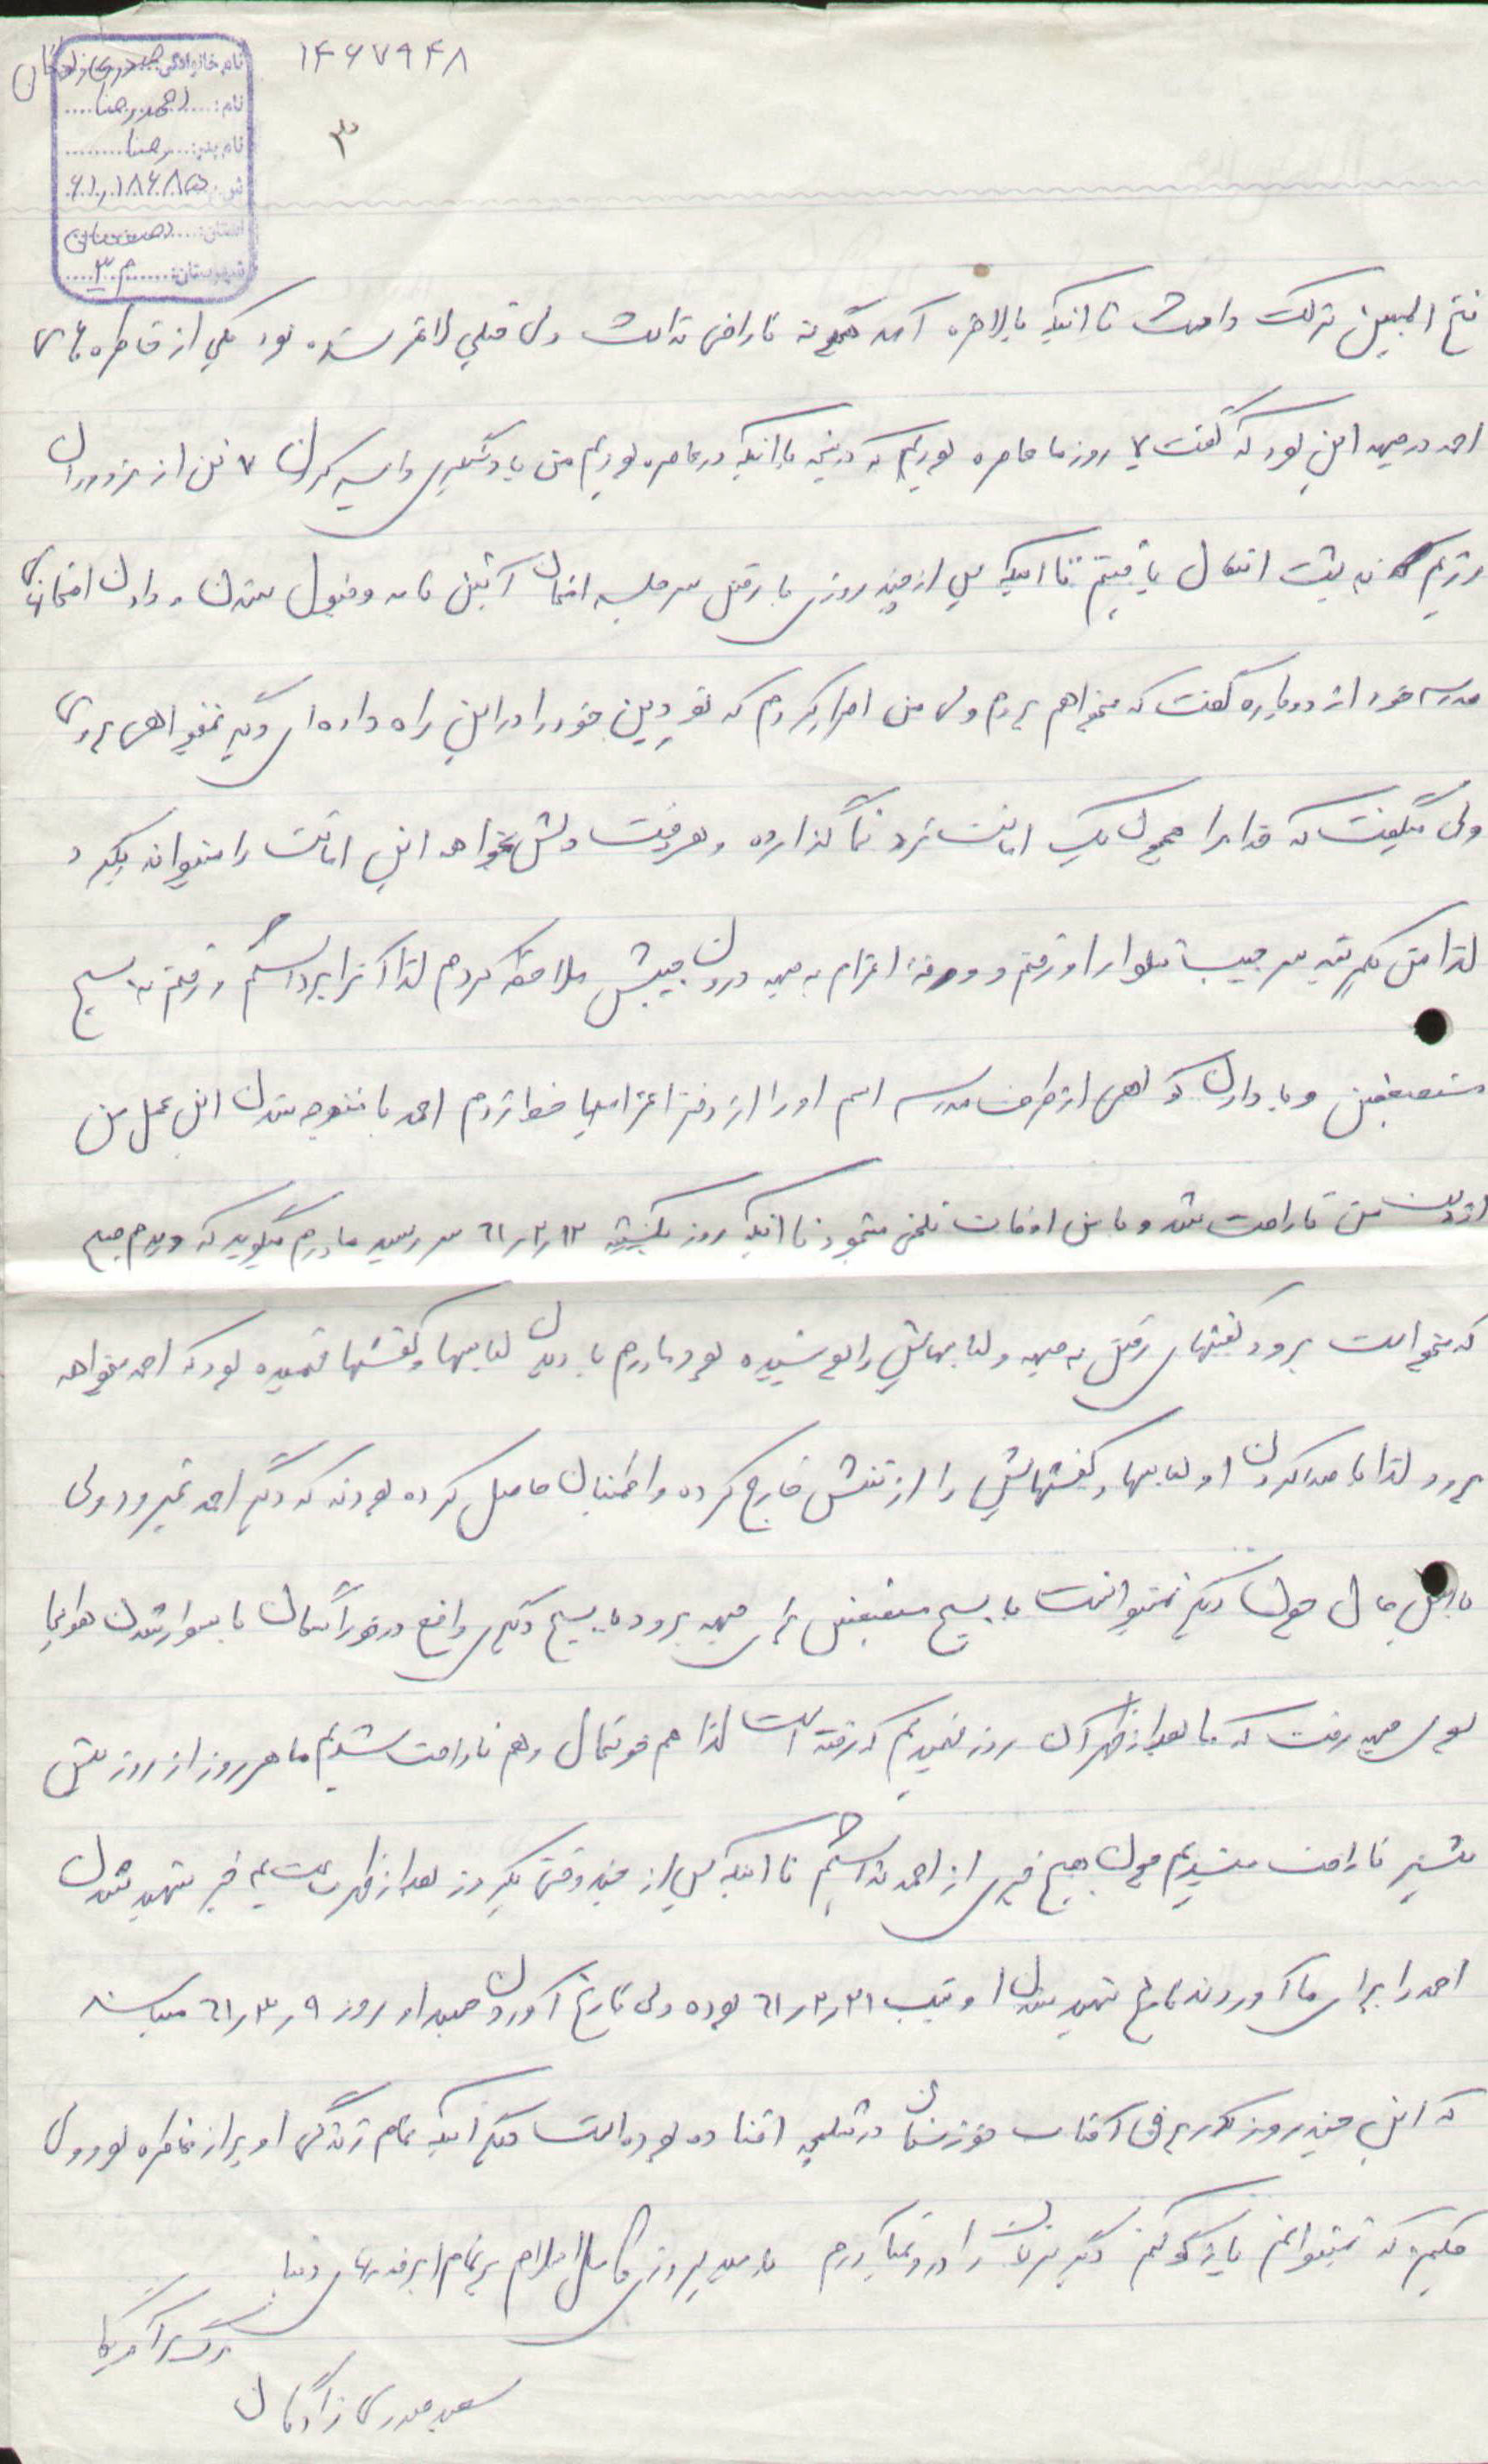 ۱۴۶۷۹۴۸
نام خانوادگی: حیدری زادگان
نام: احمدرضا
نام پدر: رضا
۶۱,۱۸۶۸۵
استان: اصفهان
شهرستان: م ۳
۳
فتح المبین شرکت داشت تا اینکه بالاخره آمد هیچگونه ناراضی نداشت ولی خیلی لاغر شده بود یکی از خاطره های
احمد در جبهه این بود که گفت ۷ روز ما محاصره بودیم که در نتیجه با اینکه در محاصره بودیم من با دستگیری و اسیر کردن ۷ تن از مزدوران
رژیم به پشت انتقال یافتیم تا اینکه پس از چند روزی با رفتن سر جلسه امتحان آئین نامه و قبول شدن و دادن امتحانهای
مدرسه خود دوباره گفت که میخواهم بروم ولی من اصرار کردم که تو دین خود را در این راه داده ای دیگر نمیخواهی بروی
ولی میگفت که خدا مرا همچون یک امانت نزد شما گذارده و هر وقت دلش بخواهد این امانت را میتواند بگیرد
لذا من یکمرتبه سر جیب شلوار او رفتم و ورقهٔ اعزام به جبهه درون جیبش ملاحظه کردم لذا آنرا برداشتم و رفتم به بسیج
مستضعفین و با دادن گواهی از طرف مدرسه اسم او را از دفتر اعزامیها خط زدم احمد با متوجه شدن این عمل من
از دست من ناراحت شد و با من اوقات تلخی مینمود تا اینکه روز یکشنبه ۶۱/۲/۱۲ سر رسید مادرم میگوید که دیدم صبح
که میخواست برود کفشهای رفتن به جبهه و لباسهایش را پوشیده بود مادرم با دیدن لباسها و کفشها فهمیده بود که احمد میخواهد
برود لذا با صدا کردن او لباسها و کفشهایش را از تنش خارج کرده و اطمینان حاصل کرده بودند که دیگر احمد نمیرود ولی
با این حال چون دیگر نمیتوانست با بسیج مستضعفین برای جبهه برود با بسیج دیگری واقع در خوراسگان با سوار شدن هواپیما
بسوی جبهه رفت که ما بعد از ظهر آن روز فهمیدیم که رفته است لذا هم خوشحال و هم ناراحت شدیم ما هر روز از روز پیش
بیشتر ناراحت میشدیم چون هیچ خبری از احمد نداشتیم تا اینکه پس از چند وقتی یکروز بعد از ظهر خبر شهید شدن
احمد را برای ما آوردند تاریخ شهید شدن او شب ۶۱/۲/۳۱ بوده ولی تاریخ آوردن جسد او روز ۶۱/۳/۹ میباشد
که این چند روز در آفتاب خوزستان در افتاده بوده است اینکه تمام زندگی او پر از خاطره بود ولی
حکیم که نمیتوانم بازگو کنم دیگر سرتان را درد نمیآورم به امید پیروزی کامل اسلام بر تمام ابرقدرتهای دنیا
مرگ بر آمریکا
سعید حیدری زادگان